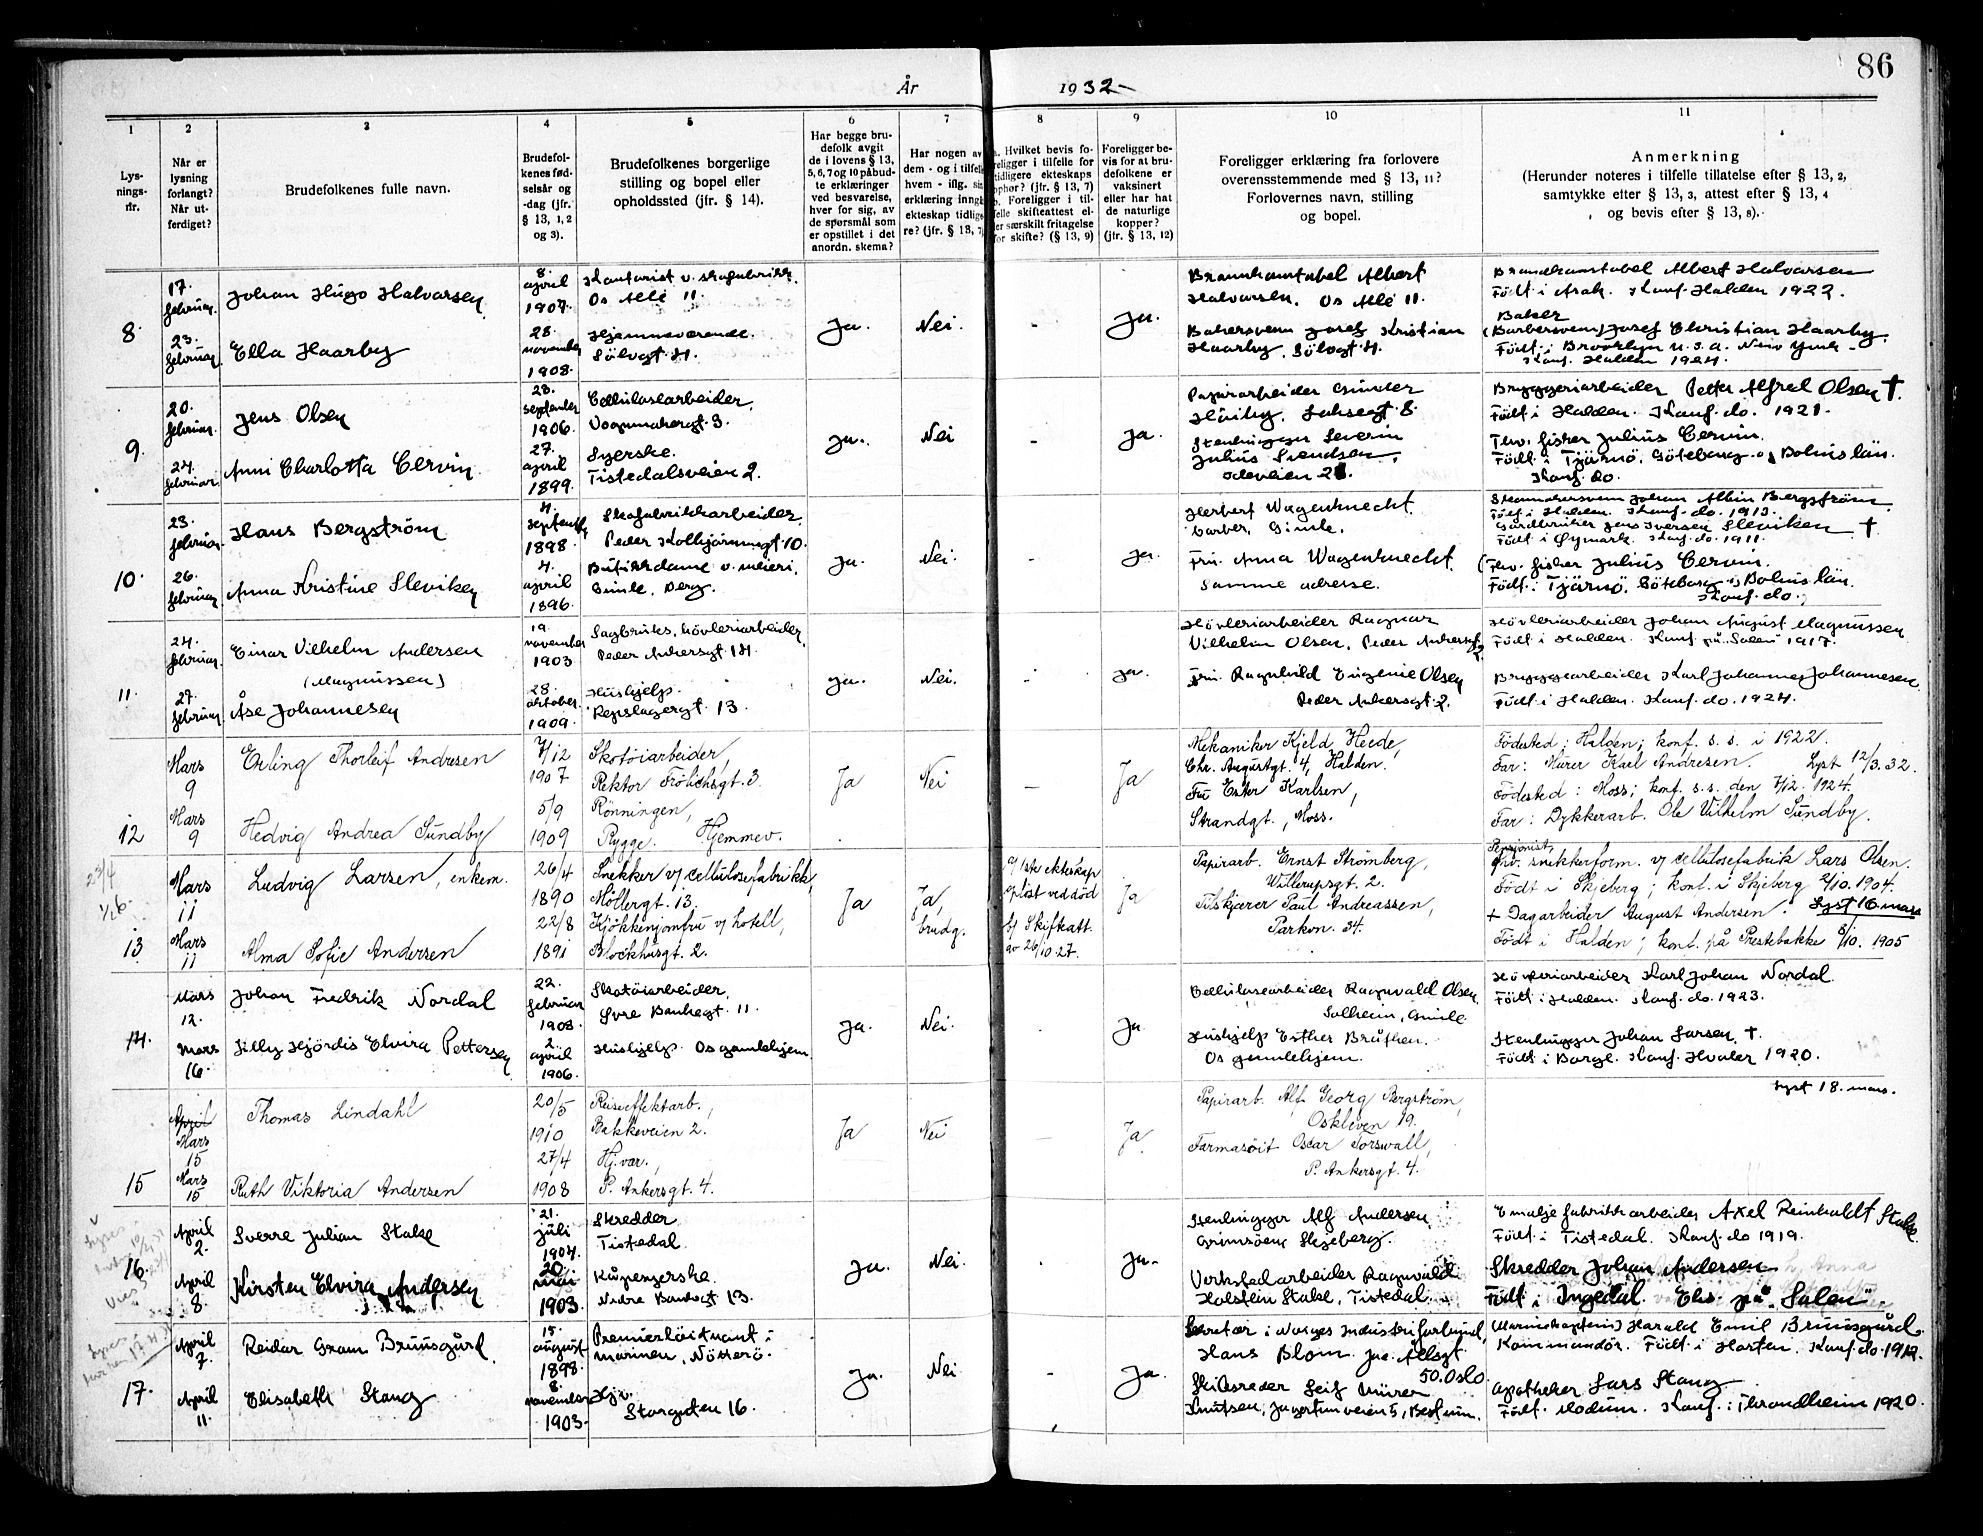 86
År 1932-
1 2 3 4 5 6 7 8 9 10 11
Lys-
nings-
nr.
Når er
lysning
forlangt?
Når ut-
ferdiget?
Brudefolkenes fulle navn.
Brudefol-
kenes fød-
selsår og
-dag (jfr.
§ 13, 1, 2
og 3).
Brudefolkenes borgerlige
stilling og bopel eller
opholdssted (jfr. § 14).
Har begge bru-
defolk avgit
de i lovens § 13,
5, 6, 7 og 10 påbud-
te erklæringer
ved besvarelse,
hver for sig, av
de spørsmål som
er opstillet i det
anordn. skema?
Har nogen av
dem - og i tilfelle
hvem - iflg. sin
erklæring inngått
ekteskap tidlige-
re? (jfr. § 13, 7)
a. Hvilket bevis fo-
religger i tilfelle for
tidligere ekteskaps
ophør? (jfr. § 13, 7)
b. Foreligger i til-
felle skifteattest el-
ler særskilt fritagelse
for skifte? (§ 13, 9)
Foreligger be-
vis for at bru-
defolkene er
vaksinert
eller har hat
de naturlige
kopper?
(jfr. § 13, 12)
Foreligger erklæring fra forlovere
overensstemmende med § 13, 11?
Forlovernes navn, stilling
og bopel.
Anmerkning
(Herunder noteres i tilfelle tillatelse efter § 13, 2,
samtykke efter § 13, 3, attest efter § 13, 4
og bevis efter § 13, 8).
8.
17.
februar
Johan Hugo Halvorsen
8.
april
1907.
Kontorist v. skofabrikk.
Os Allé 11.
Ja. Nei. - Ja.
Brannkonstabel Albert
Halvorsen. Os Allé 11.
Brandkonstabel Albert Halvorsen
Født i Arak. Konf. Halden 1922.
23.
februar
Ella Haarby
28.
november
1908.
Hjemmeværende.
Sølvgt. 4.
Bakersvenn Josef Kristian
Haarby. Sølvgt. 4.
Baker
(Barbersvenn) Josef Christian Haarby.
Født i Brooklyn U.S.A. New York -
Konf. Halden 1924.
9.
20.
februar
Jens Olsen
23.
september
1906.
Cellulosearbeider.
Vognmakergt. 3.
Ja. Nei - Ja.
Papirarbeider Gunder
Huiby.
Bryggeriarbeider Petter Alfred Olsen †.
Født i Halden. Konf. do. 1921.
24.
februar
Anni Charlotta Cervin.
27.
april
1899.
Syerske.
Tistedalsveien 2.
Stenhugger Severin
Julius Svendsen,
Odeveien 21.
Fhv. fisker Julius Cervin.
Født i Tjärnö, Göteborg- og Bohus län.
Konf. do.
10.
23.
februar
Hans Bergström
4.
september
1898.
Skofabrikkarbeider.
Peder Kolbjørnsgt 10.
Ja. Nei. - Ja.
Herbert Wagenknecht.
barber, Gimle.
Skomakersvenn Johan Albin Bergström
Født i Halden. Konf. do. 1913.
26.
februar
Anna Kristine Sleviken
4.
april
1896.
Butikkdame v. meieri.
Gimle, Berg.
Fru. Anna Wagenknecht.
Samme adresse.
Gårdbruker Jens Iversen Sleviken †
Født i Øymark. Konf. do. 1911.
(Fhv. fisker Julius Cervin.
Født: Tjärnö. Göteborg- og Bohus län.
Konf. do.)
11.
24.
februar
Einar Vilhelm Andersen
(Magnussen)
19.
november
1903.
Sagbruks, høvleriarbeider
Peder Ankersgt. 14.
Ja. Nei. - Ja.
Høvleriarbeider Ragnar
Vilhelm Olsen, Peder Ankersgt 2.
Høvleriarbeider Johan August Magnussen
Født i Halden. Konf. på "Salen" 1917.
27.
februar
Åse Johannesen
28.
oktober
1909.
Hushjelp.
Repslagergt. 13.
Fru. Ragnhild Eugenie Olsen
Peder Ankersgt 2.
Bryggearbeider Karl Johannes Johannesen.
Født i Halden. Konf. do. 1924.
12
Mars
9
Erling Thorleif Andresen
7/12
1907
Skotøiarbeider,
Rektor Frölichsgt. 3.
Ja Nei - Ja
Mekaniker Kjeld Heede,
Chr. Augustgt. 4, Halden.
Fødested: Halden; konf. s. s. i 1922.
Far: Murer Karl Andresen. Lyst 12/3. 32.
Mars
9
Hedvig Andrea Sundby
5/9
1909
Rönningen,
Rygge. Hjemmev.
Fru Ester Karlsen,
Strandgt., Moss.
Fødested: Moss; konf. s.s. den 7/12. 1924.
Far: Dykkerarb. Ole Vilhelm Sundby.
13
Mars
11
Ludvig Larsen, enkem.
26/4
1890
Snekker v/ cellulosefabrikk,
Möllergt. 13.
Ja Ja,
brudg.
a/ 1ste ekteskap
opløst ved død
b/ Skifteatt.
av 26/10.27.
Ja
Papirarb. Ernst Strömberg,
Wittrupsgt. 2.
Pensjonist
fhv. snekkerform. v/ cellulosefabrik Lars Olsen.
Født i Skjeberg; konf. i Skjeberg 2/10. 1904.
Mars
11
Alma Sofie Andersen
22/8
1891
Kjøkkenjomfru v/ hotell,
Blockhusgt. 2.
Tilskjærer Paul Andreassen,
Parkon. 34.
+ Dagarbeider August Andersen. Lyst 16. mars
Født i Halden; konf. på Prestebakke 8/10. 1905
14.
Mars
12.
Johan Fredrik Nordal
22.
februar
1908.
Skotøiarbeider.
Øvre Bankegt. 11.
Ja. Nei. Ja.
Cellulosearbeider Ragnvald Olsen
Solheim, Gimle.
Høvleriarbeider Karl Johan Nordal.
Født i Halden. Konf. do. 1923.
Mars
16.
Lilly Hjördis Elvira Pettersen
2.
april
1906.
Hushjelp. Os gamlehjem.
Hushjelp Esther Bråthen.
Os gamlehjem.
Stenhugger Johan Larsen. †.
Født i Borge. Konf. Hvaler 1920.
Lyst 18. mars.
15
April
Mars
15
Thomas Lindahl
20/5
1910
Reiseeffektarb.,
Bakkeveien 2.
Ja Nei - Ja.
Papirarb. Alf Georg Bergström,
Oskleven 19.
Mars
15
Ruth Viktoria Andersen
27/4
1908
Hj.vær.,
P. Ankersgt. 4.
Farmasøit Oscar Torswall,
P. Ankersgt. 4.
16.
April
2.
Sverre Julian Stake
21.
juli
1904.
Skredder
Tistedal.
Ja. Nei. - Ja.
Stenhugger Alf Andersen
Grimsøen, Skjeberg.
Emaljefabrikkarbeider Axel Reinholdt Stake.
Født i Tistedal. Konf. do 1919.
April
8.
Kirsten Elvira Andersen
20.
mai
1903.
Kåpesyerske.
Nedre Bankegt 13.
Verkstedarbeider Ragnvald
Holstein Stake, Tistedal.
Skredder Johan Andersen
Født i Ingedal. Eks. på "Salen"
17.
April
7.
Reidar Gram Bruusgård.
15.
august
1898.
Premierløitnant i
marinen, Nøtterø.
Ja. Nei - Ja.
Sekretær i Norges Industriforbund,
Hans Blom jr. Allegt.
50. Oslo
(Marinekaptein) Harald Emil Bruusgård.
Kommandør. Født i Horten. Konf. do. 1912.
April
11.
Elisabeth Stang
8.
november
1903.
Hjv.
Storgaten 16.
Skibsreder Leif Müren
Knutsen, Jagertunveien 5, Bestum.
Apotheker Lars Stang
Født. Modum. Konf. i Throndheim 1920.